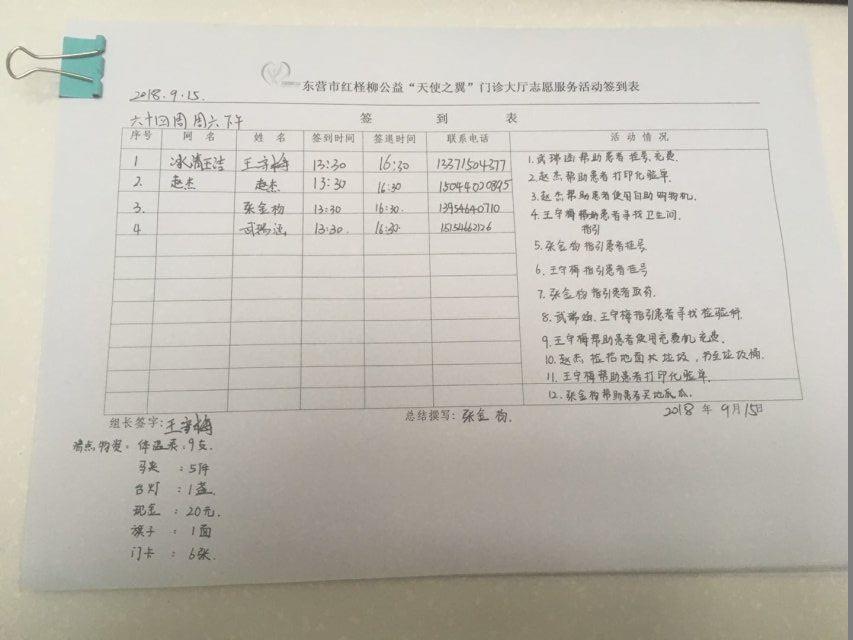 东营市红柽柳公益“天使之翼”门诊大厅志愿服务活动签到表
2018.9.15.
六十四周 周六下午
签 到 表
序号 网 名 姓 名 签到时间 签退时间 联系电话 活 动 情 况
1 冰清玉洁 王守梅 13:30 16:30 13371504377
2. 赵杰 赵杰 13:30 16:30 15044020895
3. 张金枸 13:30 16:30. 13954640710
4 武瑞涵 13:30. 16:30
1.武瑞涵帮助患者挂号充费.
2.赵杰帮助患者打印化验单.
3.赵杰帮助患者使用自助购物机.
4.王守梅帮助患者寻找卫生间.
指引
5.张金枸指引患者挂号.
6.王守梅指引患者挂号
7.张金枸指引患者取药.
8.武瑞涵.王守梅指引患者寻找检验科.
9.王守梅帮助患者使用充费机充费.
10.赵杰捡拾地面大垃圾,扔至垃圾桶.
11.王守梅帮助患者打印化验单.
12.张金枸帮助患者买地瓜.
组长签字:王守梅 总结撰写:张金枸. 2018年9月15日
清点物资:体温表:9支.
马夹:5件
台灯:1盏.
现金:20元.
旗子:1面
门卡:6张.